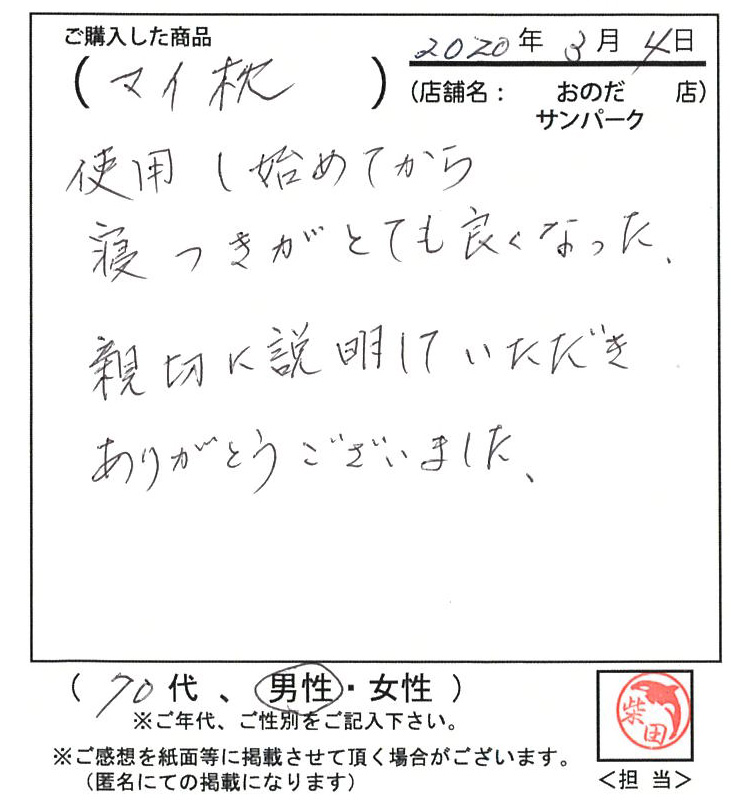 ご購入した商品
2020年 3月 4日
(マイ枕)
(店舗名： おのだ 店)
サンパーク
使用し始めてから
寝つきがとても良くなった、
親切に説明していただき
ありがとうございました、
(70代、男性・女性)
※ご年代、ご性別をご記入下さい。
※ご感想を紙面等に掲載させて頂く場合がございます。
(匿名にての掲載になります)
柴田
＜担 当＞